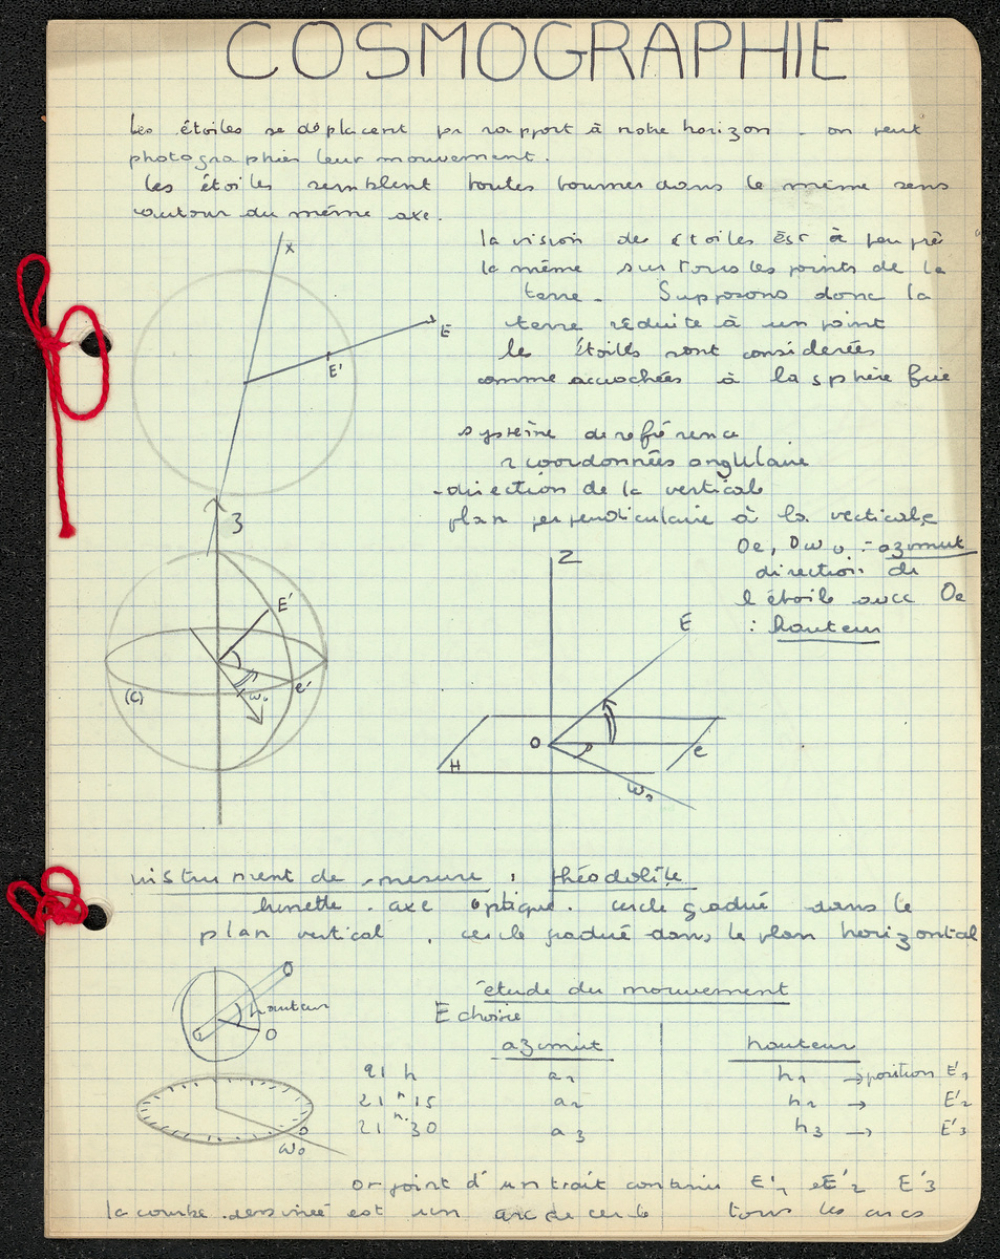 COSMOGRAPHIE
Les étoiles se déplacent pr rapport à notre horizon. on peut
photographier leur mouvement.
Les étoiles semblent toutes tourner dans le même sens
autour du même axe.
la vision des étoiles est à peu près
la même sur tous les points de la
terre. Supposons donc la
terre réduite à un point
les étoiles sont considérées
comme accrochées à la sphère fixe
x
E
E'
système de référence
2 coordonnées angulaire
- direction de la verticale
plan perpendiculaire à la verticale
Oe, Oω0 = azimut
direction de
l'étoile avec Oe
: hauteur
3
E'
(C)
ω0
e'
Z
E
O
H
e
ω0
instrument de mesure : théodolite
lunette. axe optique. cercle gradué dans le
plan vertical, cercle gradué dans le plan horizontal
hauteur
O
ω0
étude du mouvement
E choisie
azimut hauteur
21 h a1 h1 → position E'1
21 h 15 a2 h2 → E'2
21 h 30 a3 h3 → E'3
on joint d'un trait continu E'1 et E'2 E'3
la courbe dessinée est un arc de cercle tous les arcs